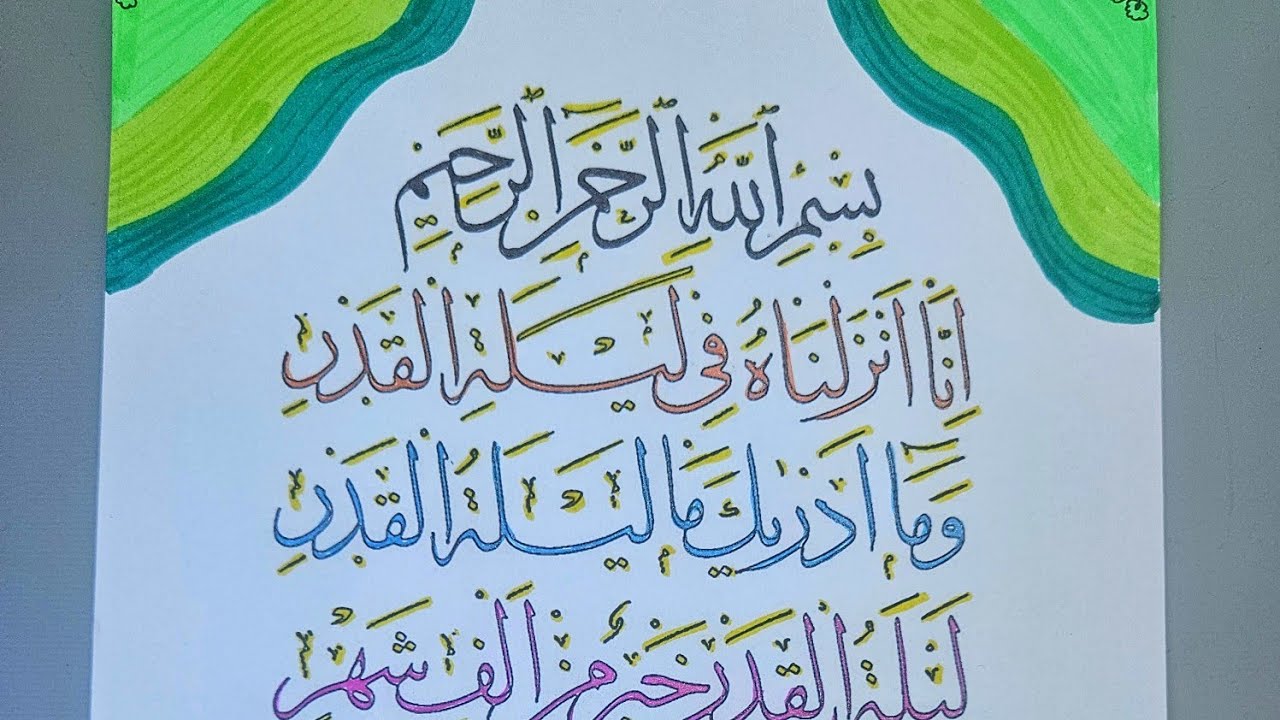 بِسْمِ ٱللَّهِ ٱلرَّحْمَٰنِ ٱلرَّحِيمِ
اِنَّا اَنْزَلْنَاهُ فِى لَيْلَةِ الْقَدْرِ
وَمَٓا اَدْرٰيكَ مَا لَيْلَةُ الْقَدْرِ
لَيْلَةُ الْقَدْرِ خَيْرٌ مِنْ اَلْفِ شَهْرٍ